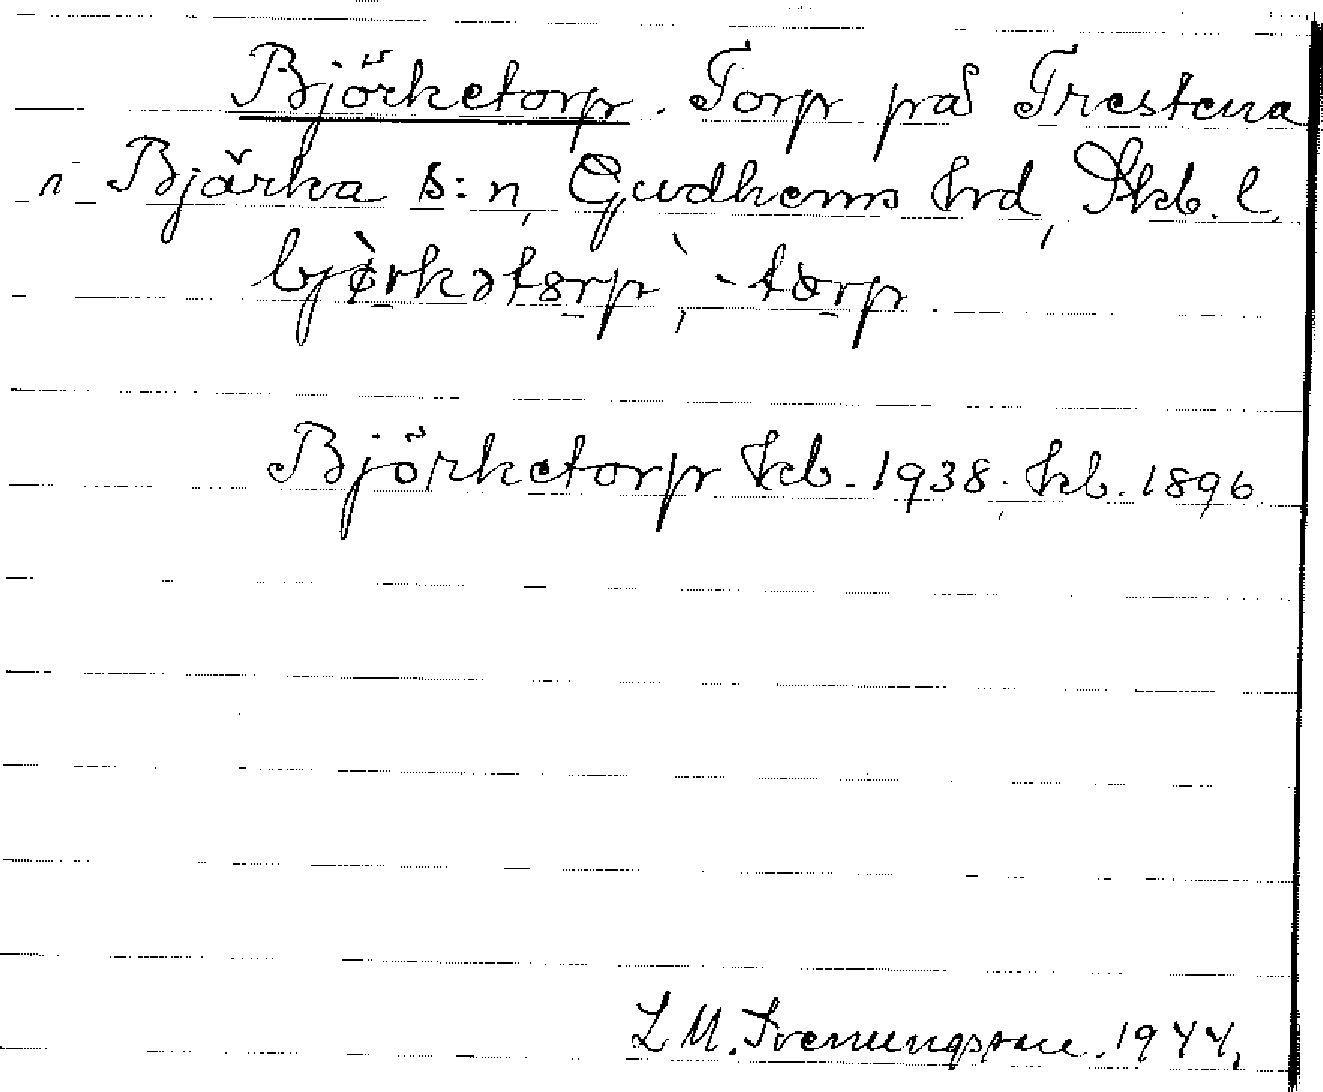 Björketorp. Torp på Trestena
i Bjärka s:n, Gudhems hrd, Skb. l.
bjørkətørp, -tørp.
Björketorp kb. 1938. hb. 1896
L M. Svenungsson. 1944.